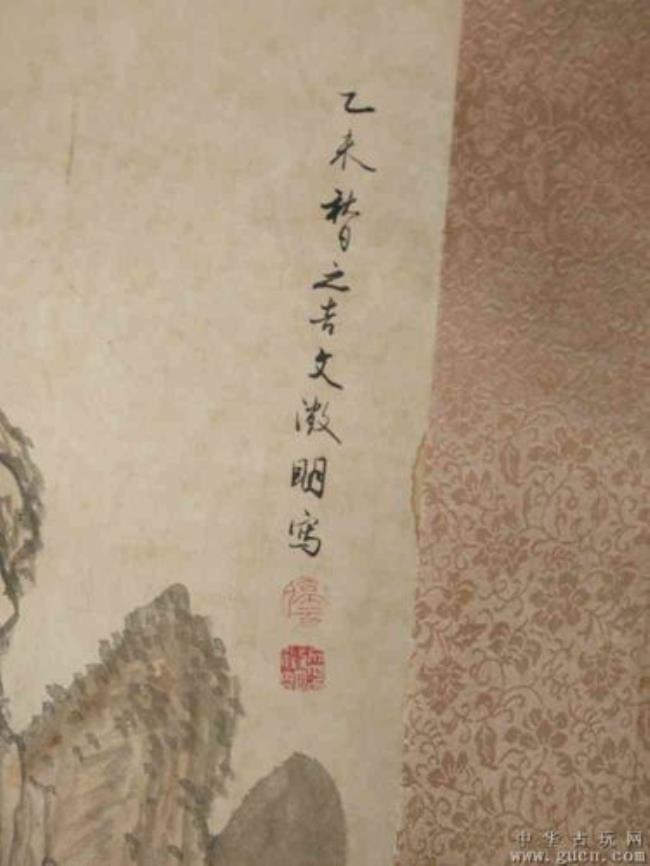 乙未秋日之吉文徵明寫
停云
中华古玩网
www.gucn.com